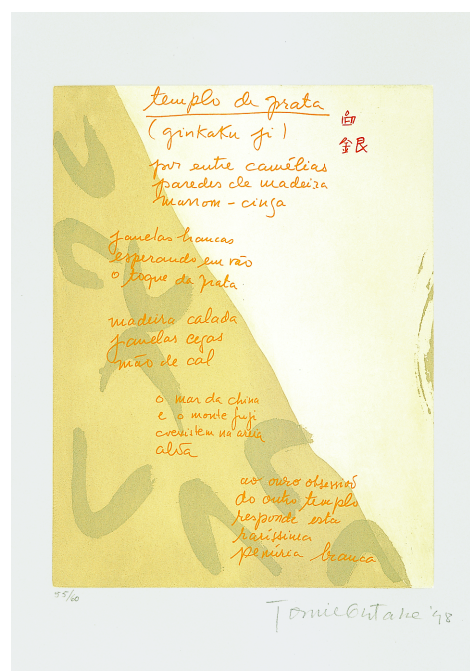 templo de prata
(ginkaku ji)
白
銀
por entre camélias
paredes de madeira
marrom-cinza
janelas brancas
esperando em vão
o toque da prata
madeira calada
janelas cegas
mão de cal
o mar da china
e o monte fuji
coexistem na areia
alvíssima
ao ouro obsessivo
do outro templo
responde esta
raríssima
penúria branca
55/60
Tomie Ohtake '98